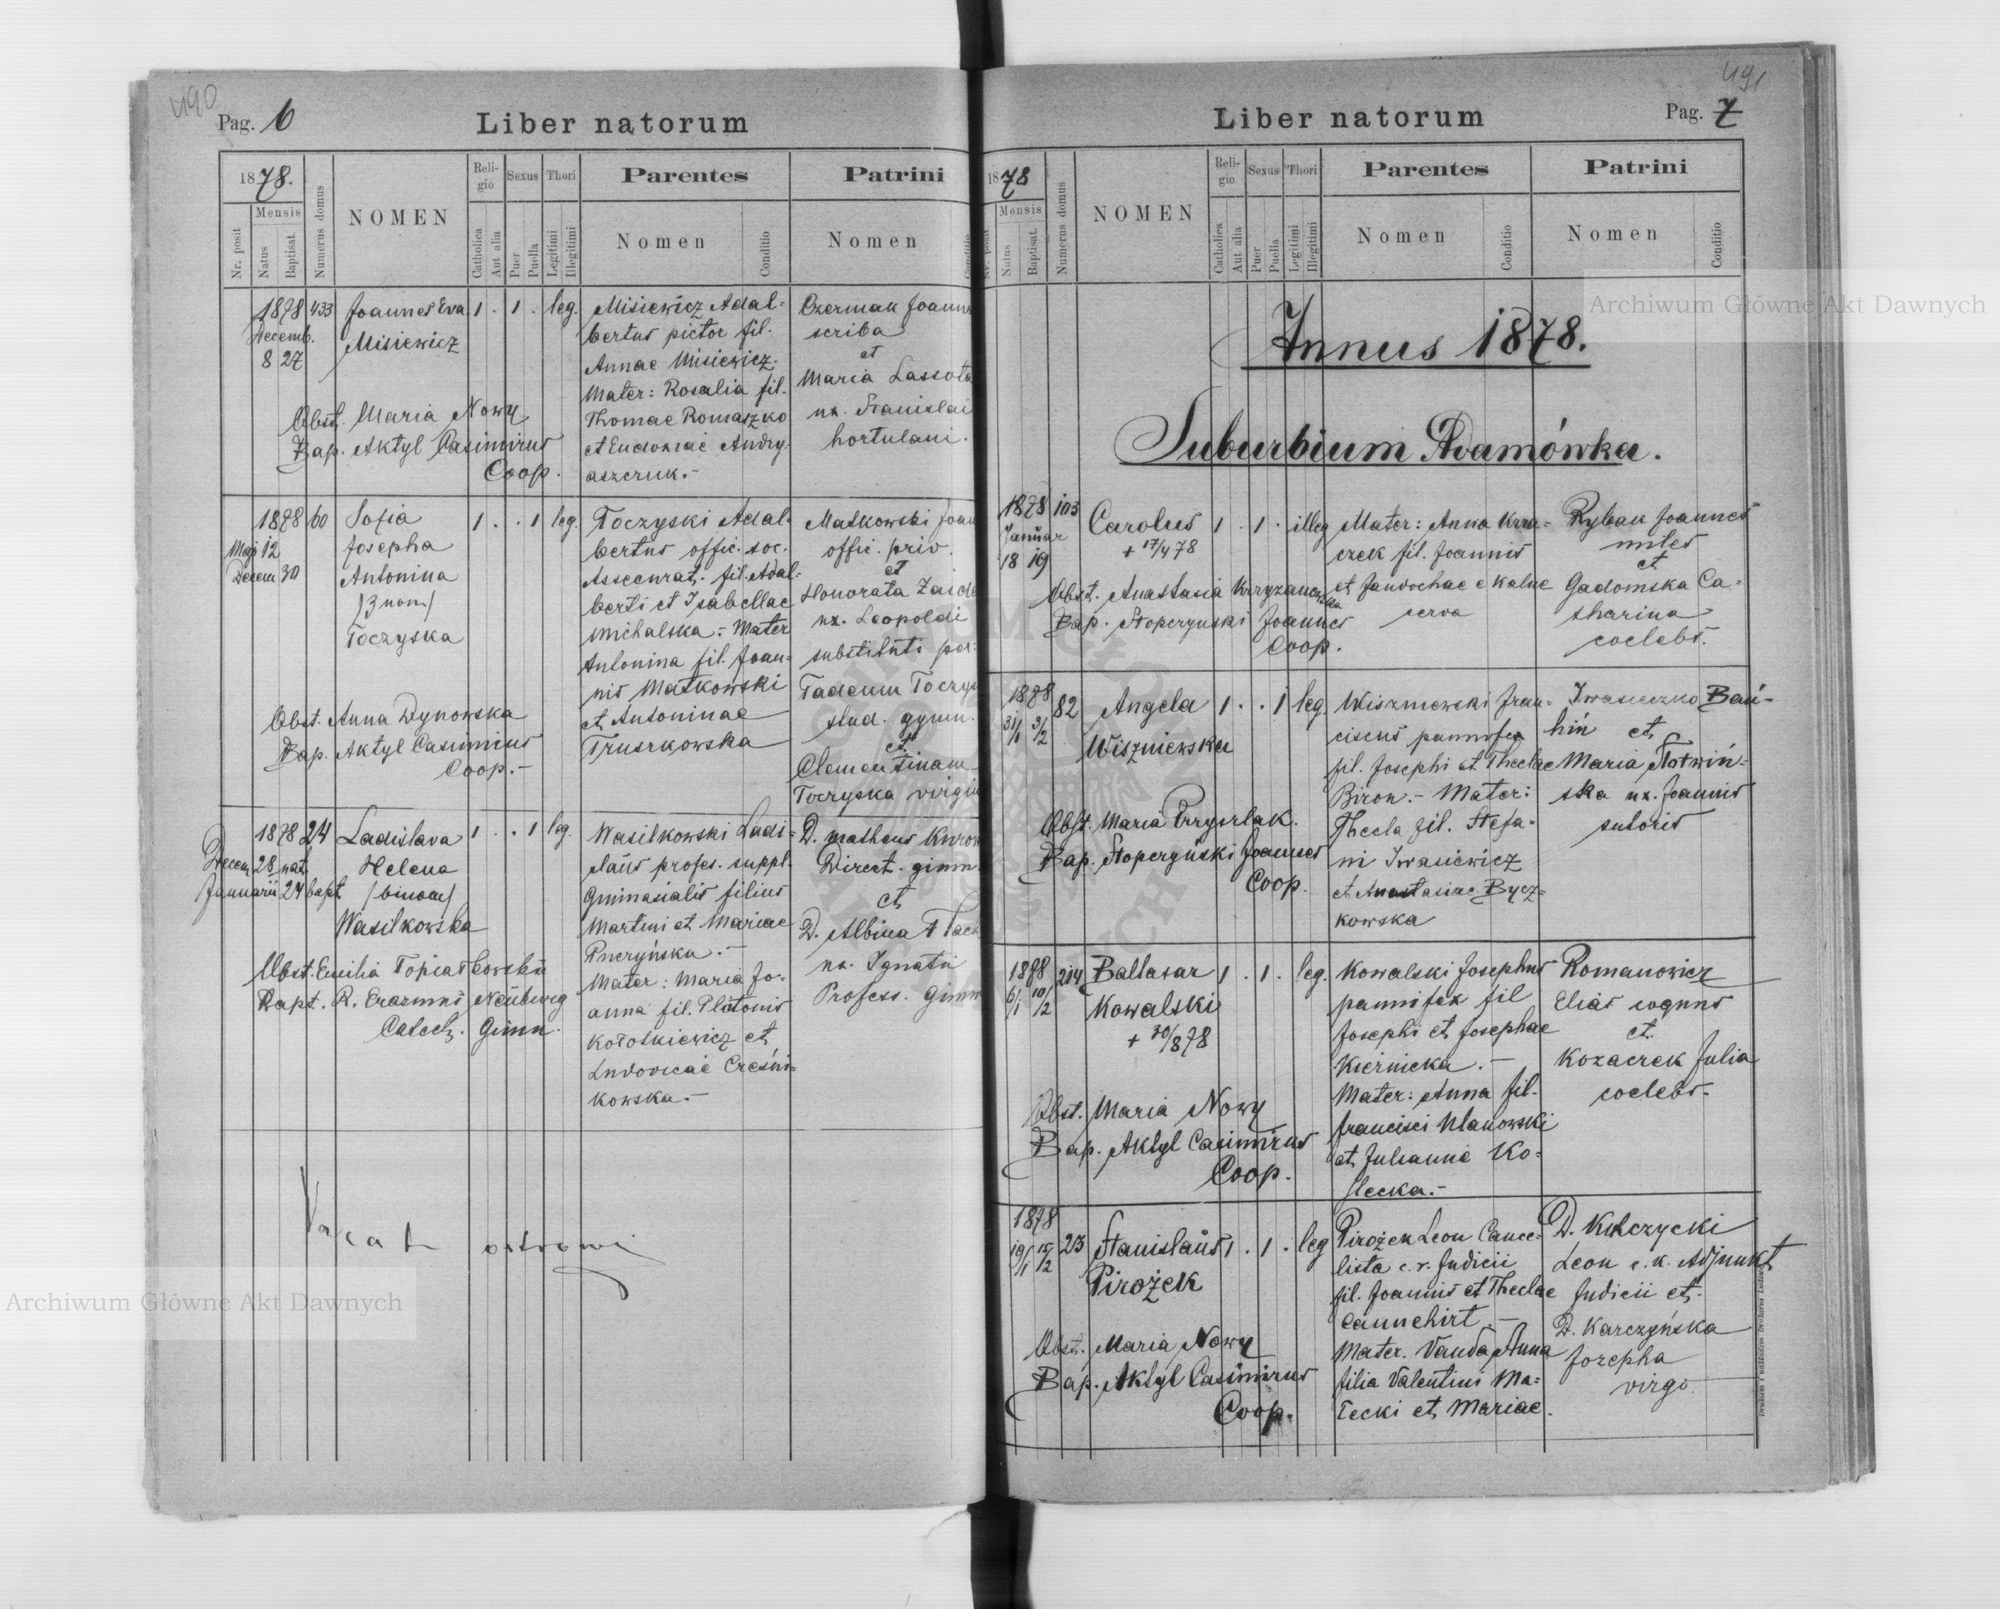 490
Pag. 6
Liber natorum
1878.
Nr. posit
Mensis
Natus
Baptisat.
Numerus domus
NOMEN
Religio
Catholica
Aut alia
Sexus
Puer
Puella
Thori
Legitimi
Illegitimi
Parentes
Nomen
Conditio
Patrini
Nomen
Conditio
1878 433 Joannes Eva 1 . 1 . leg.
Decemb.
8 27
Misiewicz
Obst. Maria Nowy
Bap. Aktyl Casimirus
Coop.
Misiewicz Adal-
bertus pictor fil.
Annae Misiewicz.
Mater: Rosalia fil.
Thomae Romaszko
et Eudoxiae Andry-
aszczuk.-
Czerman Joann
scriba
et
Maria Lassota
ux. Stanislai
hortulani.
1878 60 Sofia 1 . . 1 leg.
Maj 12
Decem 30
Josepha
Antonina
/3 nom/
Toczyska
Obst. Anna Dynowska
Bap. Aktyl Casimirus
Coop.-
Toczyski Adal-
bertus offic. soc.
Assecurat. fil. Adal-
berti et Isabellae
Michalska.- Mater
Antonina fil. Joan-
nis Matkowski
et Antoninae
Matkowski Joan
offic. priv.
et
Honorata
ux. Leopoldi
substituti
Tadeum Toczys
stud. gymn.
et
Clementinam
Toczyska virgin
1878 24 Ladislava 1 . . 1 leg.
Decem
28 nat.
Januarii 27 bapt
Helena
/binom/
Wasilkowska
Obst. Emilia
Bapt. R. Erazmus Neuburg
Catech. Gimn.
Wasilkowski Ladi-
slaus profes. suppl.
Gminasialis filius
Martini et Mariae
Mater: Maria Jo-
anna fil. Platonis
et
Ludovicae
kowska.-
D. Matheus
Direct. gimn
et
D. Albina
ux. Ignatii
Profess. Gimn
Vacat
491
Liber natorum
Pag. 7
1878
Nr. posit
Mensis
Natus
Baptisat.
Numerus domus
NOMEN
Religio
Catholica
Aut alia
Sexus
Puer
Puella
Thori
Legitimi
Illegitimi
Parentes
Nomen
Conditio
Patrini
Nomen
Conditio
Annus 1878.
Suburbium Adamówka.
1878 103 Carolus 1 . 1 . illeg
Januar
18 19
+ 17/4 78
Obst. Anastasia
Bap. Stoperzynski Joannes
Coop.
Mater: Anna Kra-
czek fil. Joannis
et
serva
Rybak Joannes
miles
et
Gadomska Ca-
tharina
coelebs.-
1878 82 Angela 1 . . 1 leg.
31/1 3/2
Wiszniewska
Obst. Maria Przyszlak.
Bap. Stoperzyński Joannes
Coop.
Wiszniewski Fran-
ciscus pannifex
fil. Josephi et Theclae
Biron.- Mater:
Thecla fil. Stefa-
ni Iwasiewicz
et Anastasiae Bycz-
kowska
Iwasieczko
et
Maria
ska ux. Joannis
sutoris
1878 214 Baltasar 1 . 1 . leg.
6/1 10/2
Kowalski
+ 30/8 78
Obst. Maria Nowy
Bap. Aktyl Casimirus
Coop.
Kowalski Josephus
pannifex fil
Josephi et Josephae
Kiernicka.-
Mater: Anna fil.
Francisci Ulanowski
et Julianne Ko-
Romanowicz
Elias coquus
et
Kozaczek Julia
coelebs.-
1878 23 Stanislaus 1 . 1 . leg
19/1 15/2
Pirożek
Obst. Maria Nowy
Bap. Aktyl Casimirus
Coop.
Pirożek Leon Cance-
lista c.r. Judicii
fil. Joannis et Theclae
Mater. Vanda Anna
filia Valentini Ma-
łecki et Mariae.
D. Kulczycki
Leon c.k. Adjunkt
Judicii et
D. Karczyńska
Jozepha
virgo.
Archiwum Główne Akt Dawnych
Archiwum Główne Akt Dawnych